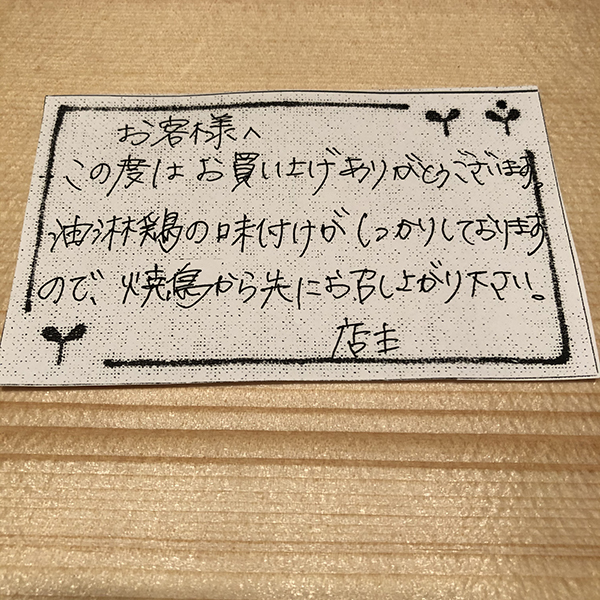 お客様へ
この度はお買い上げありがとうございます。
油淋鶏の味付けがしっかりしております
ので、焼鳥から先にお召し上がり下さい。
店主